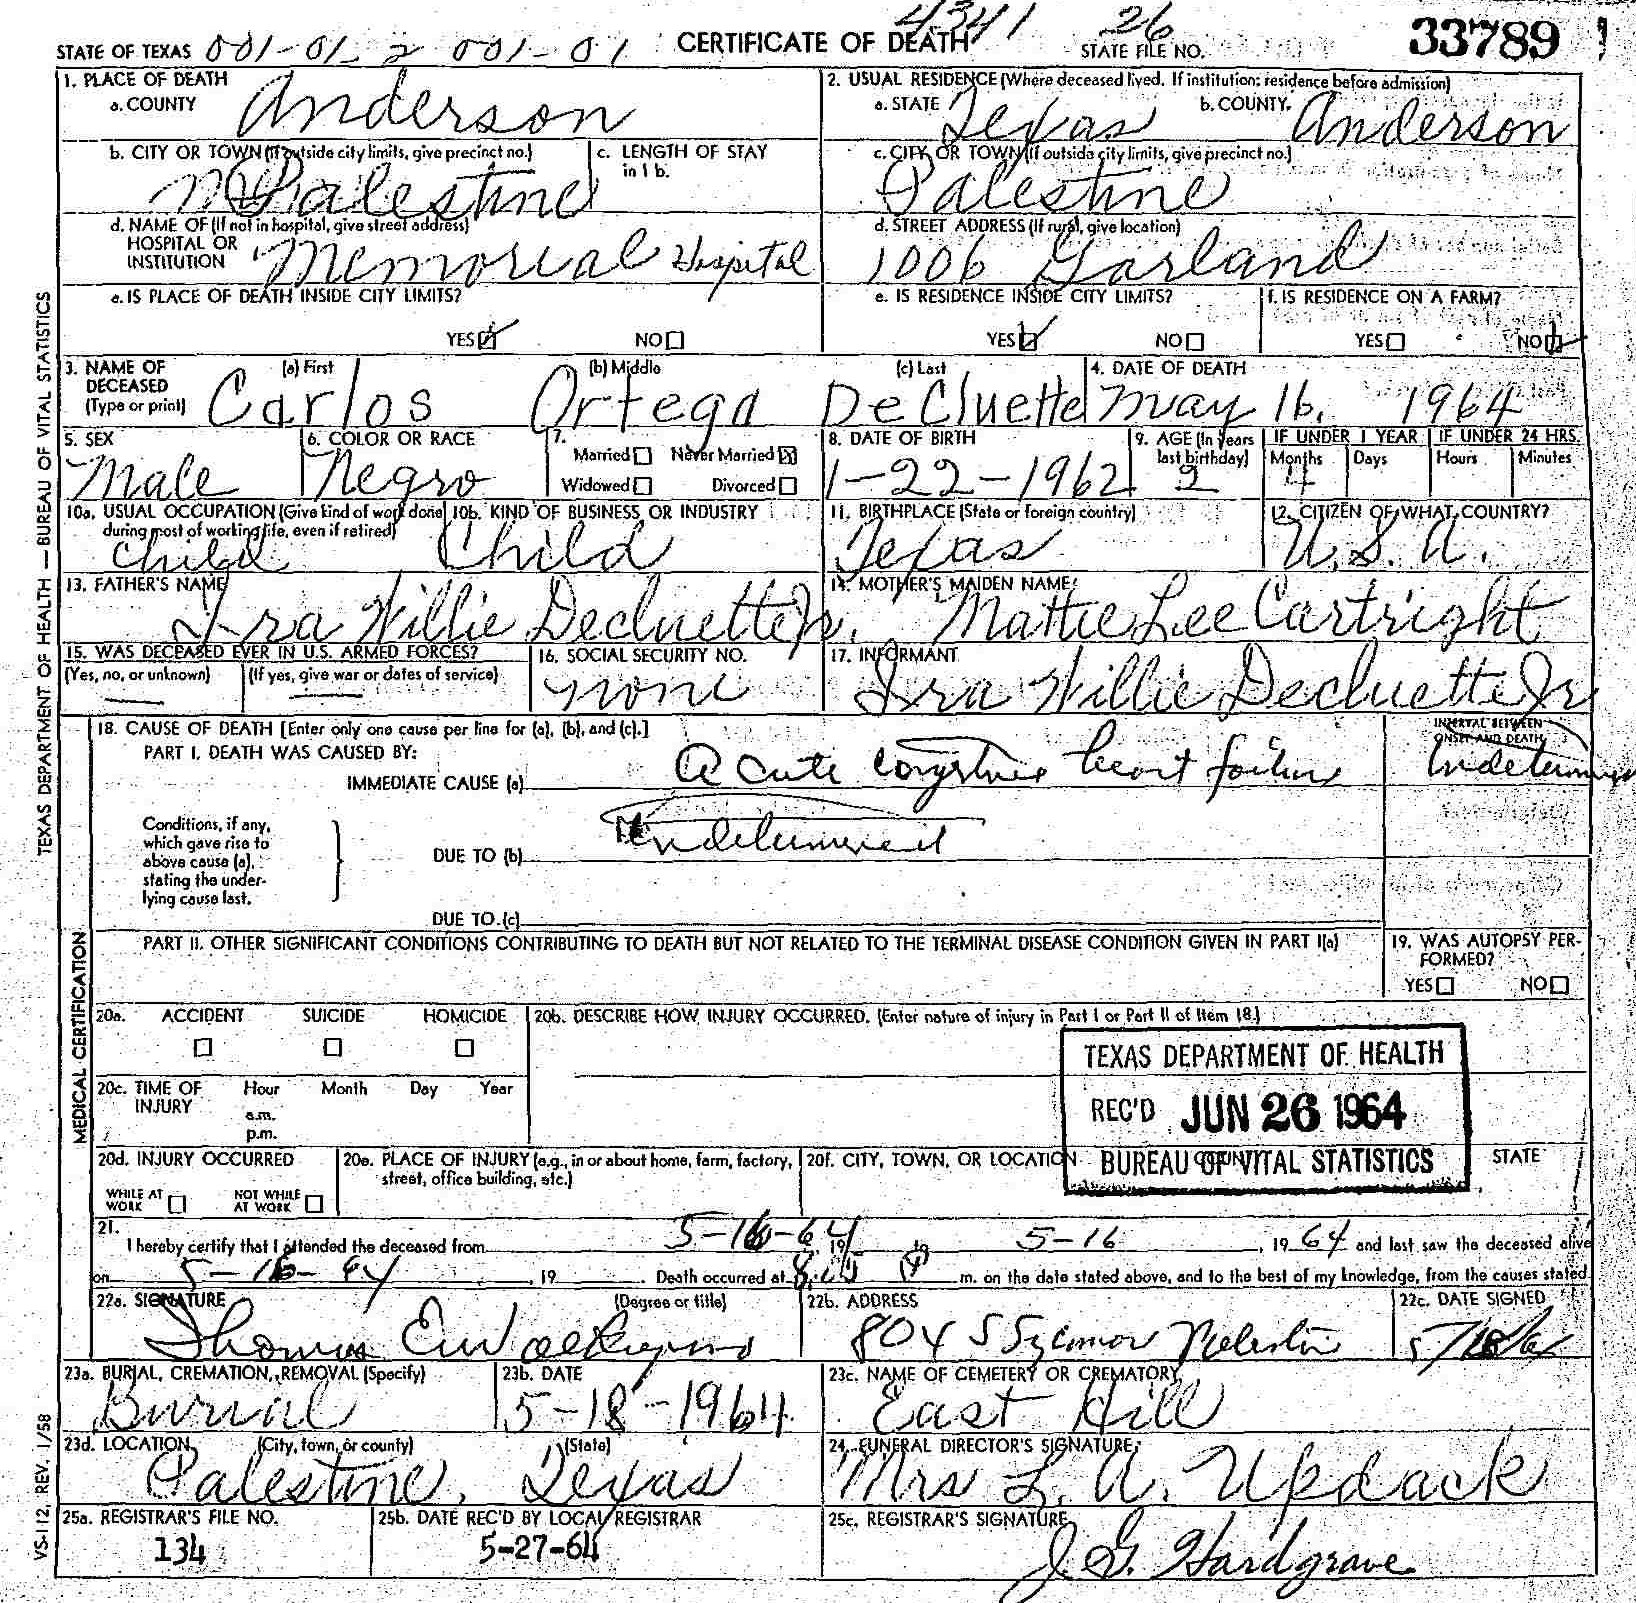 4341 26
STATE OF TEXAS 001-01-2 001-01 CERTIFICATE OF DEATH STATE FILE NO. 33789
1. PLACE OF DEATH
a. COUNTY Anderson
2. USUAL RESIDENCE (Where deceased lived. If institution: residence before admission)
a. STATE Texas b. COUNTY. Anderson
b. CITY OR TOWN (If outside city limits, give precinct no.) Palestine
c. LENGTH OF STAY in 1 b.
c. CITY OR TOWN (If outside city limits, give precinct no.) Palestine
d. NAME OF (If not in hospital, give street address)
HOSPITAL OR
INSTITUTION Memorial Hospital
d. STREET ADDRESS (If rural, give location)
1006 Garland
e. IS PLACE OF DEATH INSIDE CITY LIMITS?
YES NO
e. IS RESIDENCE INSIDE CITY LIMITS?
YES NO
f. IS RESIDENCE ON A FARM?
YES NO
3. NAME OF DECEASED (Type or print)
(a) First (b) Middle (c) Last
Carlos Ortega DeCluette
4. DATE OF DEATH
May 16, 1964
5. SEX
Male
6. COLOR OR RACE
Negro
7. Married Never Married
Widowed Divorced
8. DATE OF BIRTH
1-22-1962
9. AGE (In years last birthday)
2
IF UNDER 1 YEAR IF UNDER 24 HRS.
Months Days Hours Minutes
4
10a. USUAL OCCUPATION (Give kind of work done during most of working life, even if retired)
Child
10b. KIND OF BUSINESS OR INDUSTRY
Child
11. BIRTHPLACE (State or foreign country)
Texas
12. CITIZEN OF WHAT COUNTRY?
U.S.A.
13. FATHER'S NAME
Ira Willie Decluette Jr.
14. MOTHER'S MAIDEN NAME
Mattie Lee Cartright
15. WAS DECEASED EVER IN U.S. ARMED FORCES?
(Yes, no, or unknown) (If yes, give war or dates of service)
16. SOCIAL SECURITY NO.
none
17. INFORMANT
Ira Willie Decluette Jr
18. CAUSE OF DEATH [Enter only one cause per line for (a), (b), and (c).]
INTERVAL BETWEEN ONSET AND DEATH
PART I. DEATH WAS CAUSED BY:
IMMEDIATE CAUSE (a) Acute congestive heart failure
Conditions, if any,
which gave rise to
above cause (a),
stating the under-
lying cause last.
DUE TO (b) Undetermined
DUE TO (c)
PART II. OTHER SIGNIFICANT CONDITIONS CONTRIBUTING TO DEATH BUT NOT RELATED TO THE TERMINAL DISEASE CONDITION GIVEN IN PART I(a)
19. WAS AUTOPSY PER-
FORMED?
YES NO
20a. ACCIDENT SUICIDE HOMICIDE
20b. DESCRIBE HOW INJURY OCCURRED. (Enter nature of injury in Part I or Part II of Item 18.)
20c. TIME OF INJURY Hour Month Day Year
a.m.
p.m.
TEXAS DEPARTMENT OF HEALTH
REC'D JUN 26 1964
BUREAU OF VITAL STATISTICS
20d. INJURY OCCURRED
WHILE AT WORK NOT WHILE AT WORK
20e. PLACE OF INJURY (e.g., in or about home, farm, factory, street, office building, etc.)
20f. CITY, TOWN, OR LOCATION STATE
21.
I hereby certify that I attended the deceased from 5-16-64 19 5-16, 19 64 and last saw the deceased alive
on 5-16-64, 19 . Death occurred at m. on the date stated above, and to the best of my knowledge, from the causes stated
22a. SIGNATURE (Degree or title)
Thomas
22b. ADDRESS
804 S Sycamore Palestine
22c. DATE SIGNED
23a. BURIAL, CREMATION, REMOVAL (Specify)
Burial
23b. DATE
5-18-1964
23c. NAME OF CEMETERY OR CREMATORY
East Hill
23d. LOCATION (City, town, or county) (State)
Palestine, Texas
24. FUNERAL DIRECTOR'S SIGNATURE
Mrs L. A. Updack
25a. REGISTRAR'S FILE NO.
134
25b. DATE REC'D BY LOCAL REGISTRAR
5-27-64
25c. REGISTRAR'S SIGNATURE
J. G. Hardgrave
TEXAS DEPARTMENT OF HEALTH — BUREAU OF VITAL STATISTICS
MEDICAL CERTIFICATION
VS-112, REV. 1/58